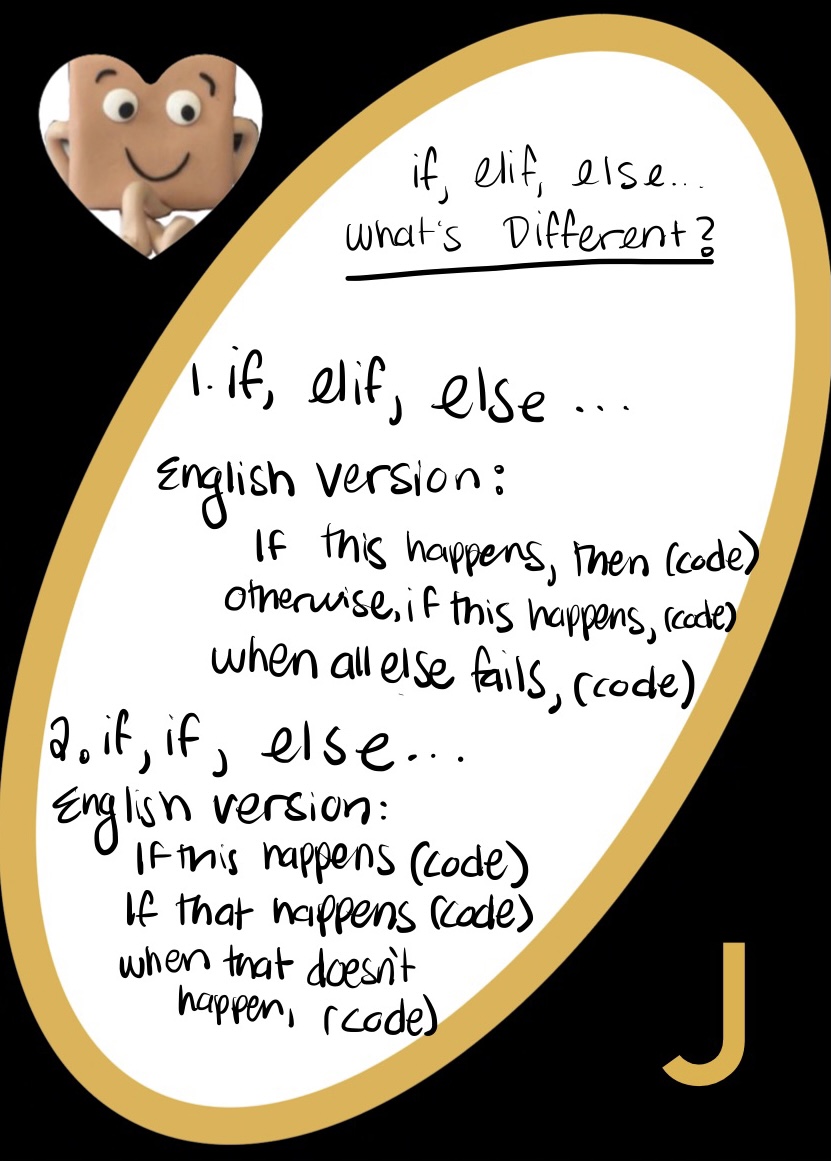 if, elif, else...
What's Different?
1. if, elif, else ...
English version:
If this happens, then (code)
otherwise, if this happens, (code)
when all else fails, (code)
2. if, if, else...
English version:
If this happens (code)
If that happens (code)
when that doesn't
happen, (code)
J